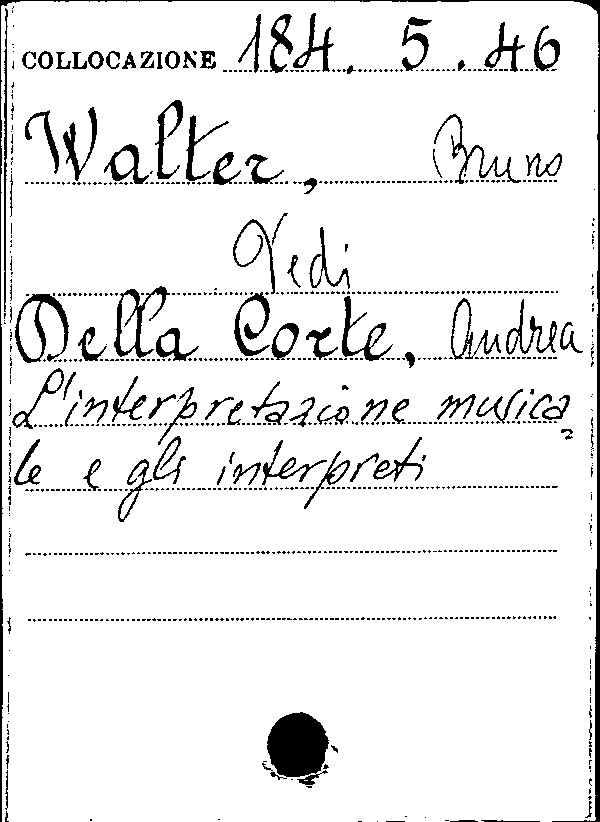 COLLOCAZIONE 184. 5. 46
Walter, Bruno
Vedi
Della Corte, Andrea
L'interpretazione musica
le e gli interpreti